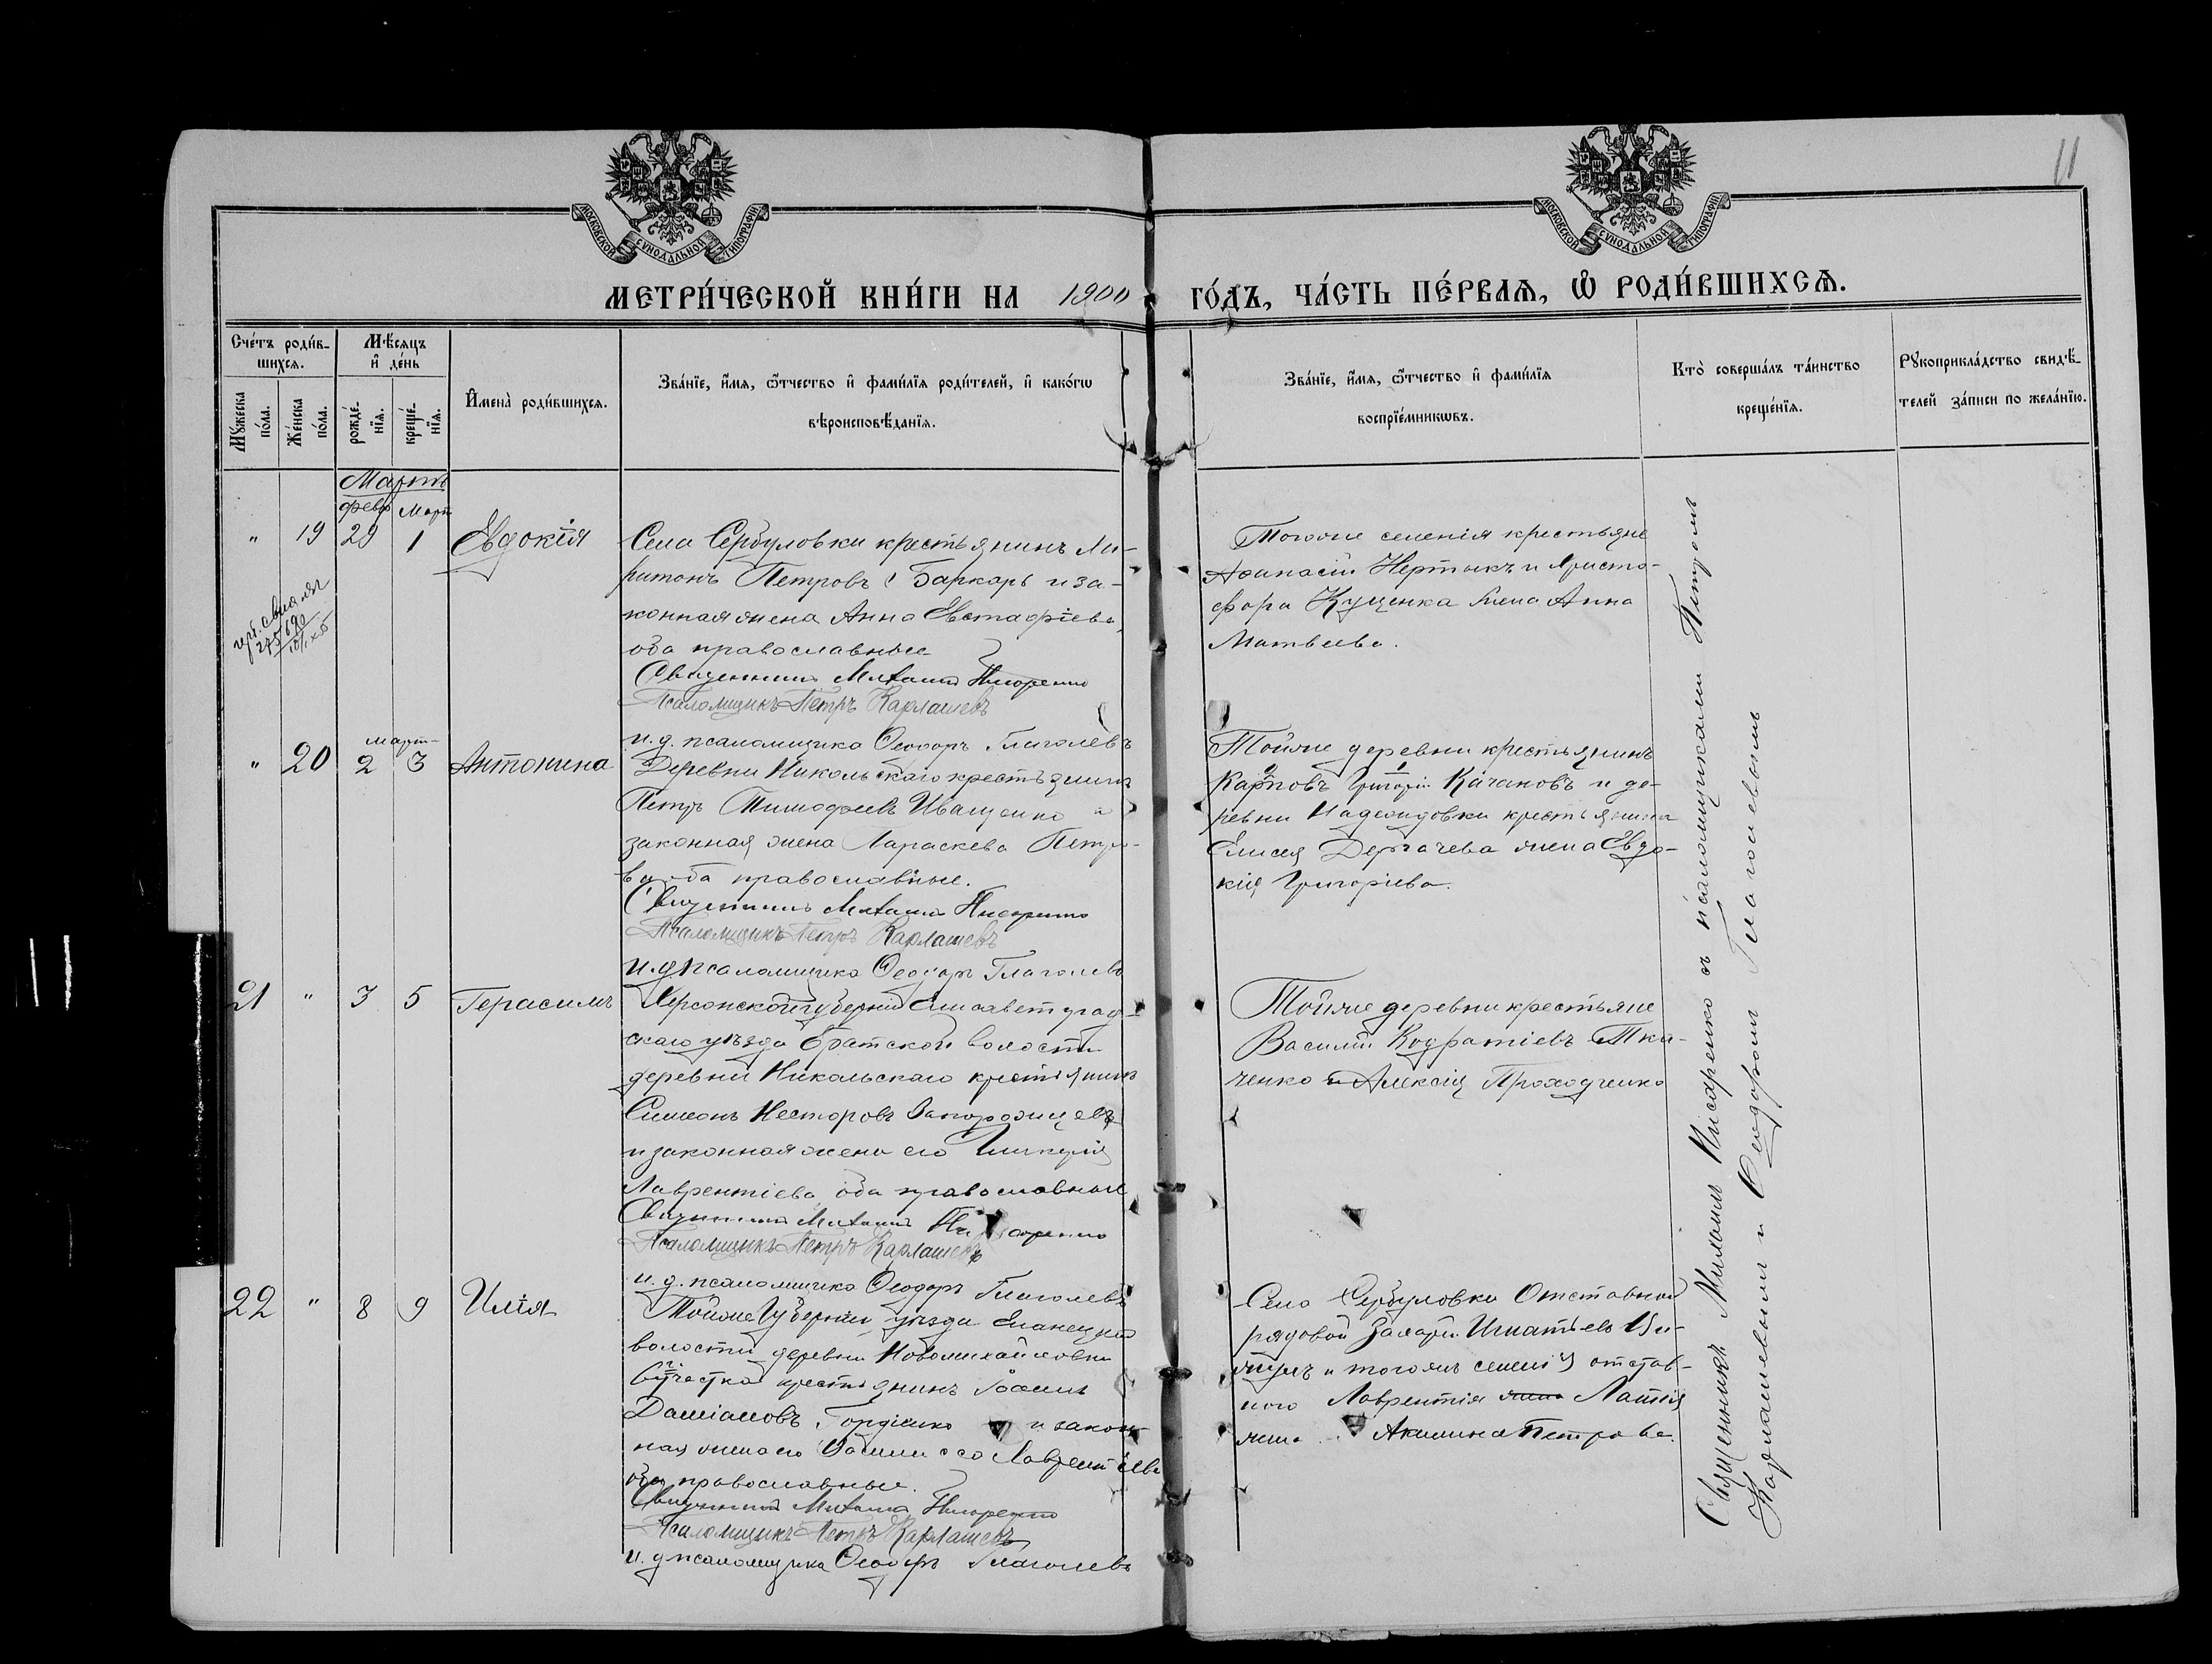 11
МОСКОВСКОЙ СѴНОДАЛЬНОЙ ТИПОГРАФІИ
МОСКОВСКОЙ СѴНОДАЛЬНОЙ ТИПОГРАФІИ
МЕТРИ́ЧЕСКОЙ КНИ́ГИ НА 1900 ГО́ДЪ, ЧА́СТЬ ПЕ́РВАѦ, Ѡ РОДИ́ВШИХСѦ.
Счётъ роди́в-
шихсѧ.
Мѣ́сѧцъ
и де́нь
Мꙋ́жеска по́ла.
Же́нска по́ла.
рожде́-
нїѧ.
креще́-
нїѧ.
Имена̀ роди́вшихсѧ.
Зва́нїе, и́мѧ, ѻ҆́тчество и фами́лїѧ роди́телей, и како́гѡ
вѣроисповѣ́данїѧ.
Зва́нїе, и́мѧ, ѻ҆́тчество и фами́лїѧ
воспрїе́мникѡвъ.
Кто̀ соверша́лъ та́инство
креще́нїѧ.
Рꙋкоприкла́дство свидѣ́-
телей за́писи по жела́нїю.
Мартъ
февр Март
" 19 29 1 Евдокія
Села Сербуловки крестьянинъ Ха-
ритонъ Петровъ Баркарь и за-
конная жена Анна Евстафіева,
оба православные
Священникъ Михаилъ Писаренко
Псаломщикъ Петръ Карлашевъ
и.д. псаломщика Ѳеодоръ Глаголевъ
Тогоже селенія крестьяне
Аѳанасій Нертыкъ и Христо-
фора Куценка жена Анна
Матвѣева.
март
" 20 2 3 Антонина
Деревни Никольскаго крестьянинъ
Петръ Тимоѳеевъ Иващенко и
законная жена Параскева Петро-
ва оба православные.
Священникъ Михаилъ Писаренко
Псаломщикъ Петръ Карлашевъ
и.д псаломщика Ѳеодоръ Глаголевъ
Тойже деревни крестьянинъ
Карповъ Григорій Качановъ и де-
ревни Надеждовки крестьянина
Елисея Дергачева жена Евдо-
кія Григоріева.
21 " 3 5 Герасимъ
Херсонской губерніи Елисаветград-
скаго уѣзда Братской волости
деревни Никольскаго крестьянинъ
Симеонъ Несторовъ
и законная жена его Гликерія
Лаврентіева, оба православные
Священникъ Михаилъ Писаренко
Псаломщикъ Петръ Карлашевъ
и.д. псаломщика Ѳеодоръ Глаголевъ
Тойже деревни крестьяне
Василій Кодратіевъ Тка-
ченко и Алексія Проходченко
22 " 8 9 Илія
Тойже Губерніи, уѣзда Еланецкой
волости деревни Новомихайловки
участка крестьянинъ Іоаннъ
Даміановъ Гордіенко и закон-
ная жена его Лаврентіева
оба православные.
Священникъ Михаилъ Писаренко
Псаломщикъ Петръ Карлашевъ
и.д псаломщика Ѳеодоръ Глаголевъ
Села Сербуловки Отставной
рядовой Захарій Игнатіевъ
и тогожъ селенія отстав-
ного Лаврентія
жена Акилина Петрова.
Священникъ Михаилъ Писаренко съ псаломщиками Петромъ
Карлашевымъ и Ѳеодоромъ Глаголевымъ